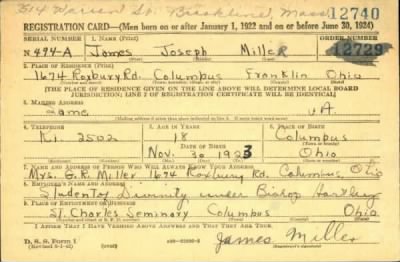 314 Warren St. Brookline Mass
12740
REGISTRATION CARD—(Men born on or after January 1, 1922 and on or before June 30, 1924)
SERIAL NUMBER 1. NAME (Print) ORDER NUMBER
N 494-A James Joseph Miller 12729
(First) (Middle) (Last)
2. PLACE OF RESIDENCE (Print)
1674 Roxbury Rd. Columbus Franklin Ohio
(Number and street) (Town, township, village, or city) (County) (State)
[THE PLACE OF RESIDENCE GIVEN ON THE LINE ABOVE WILL DETERMINE LOCAL BOARD
JURISDICTION; LINE 2 OF REGISTRATION CERTIFICATE WILL BE IDENTICAL]
3. MAILING ADDRESS
Same
4. TELEPHONE 5. AGE IN YEARS 6. PLACE OF BIRTH
Ki. 2502 18 Columbus
DATE OF BIRTH
Nov. 30 1923 Ohio
(Mo.) (Day) (Yr.)
7. NAME AND ADDRESS OF PERSON WHO WILL ALWAYS KNOW YOUR ADDRESS
Mrs. G. R. Miller 1674 Roxbury Rd. Columbus, Ohio
8. EMPLOYER'S NAME AND ADDRESS
Student of Divinity under Bishop Hartley
9. PLACE OF EMPLOYMENT OR BUSINESS
St. Charles Seminary Columbus Ohio
I AFFIRM THAT I HAVE VERIFIED ABOVE ANSWERS AND THAT THEY ARE TRUE.
D. S. S. Form 1
James Miller
(Registrant's signature)